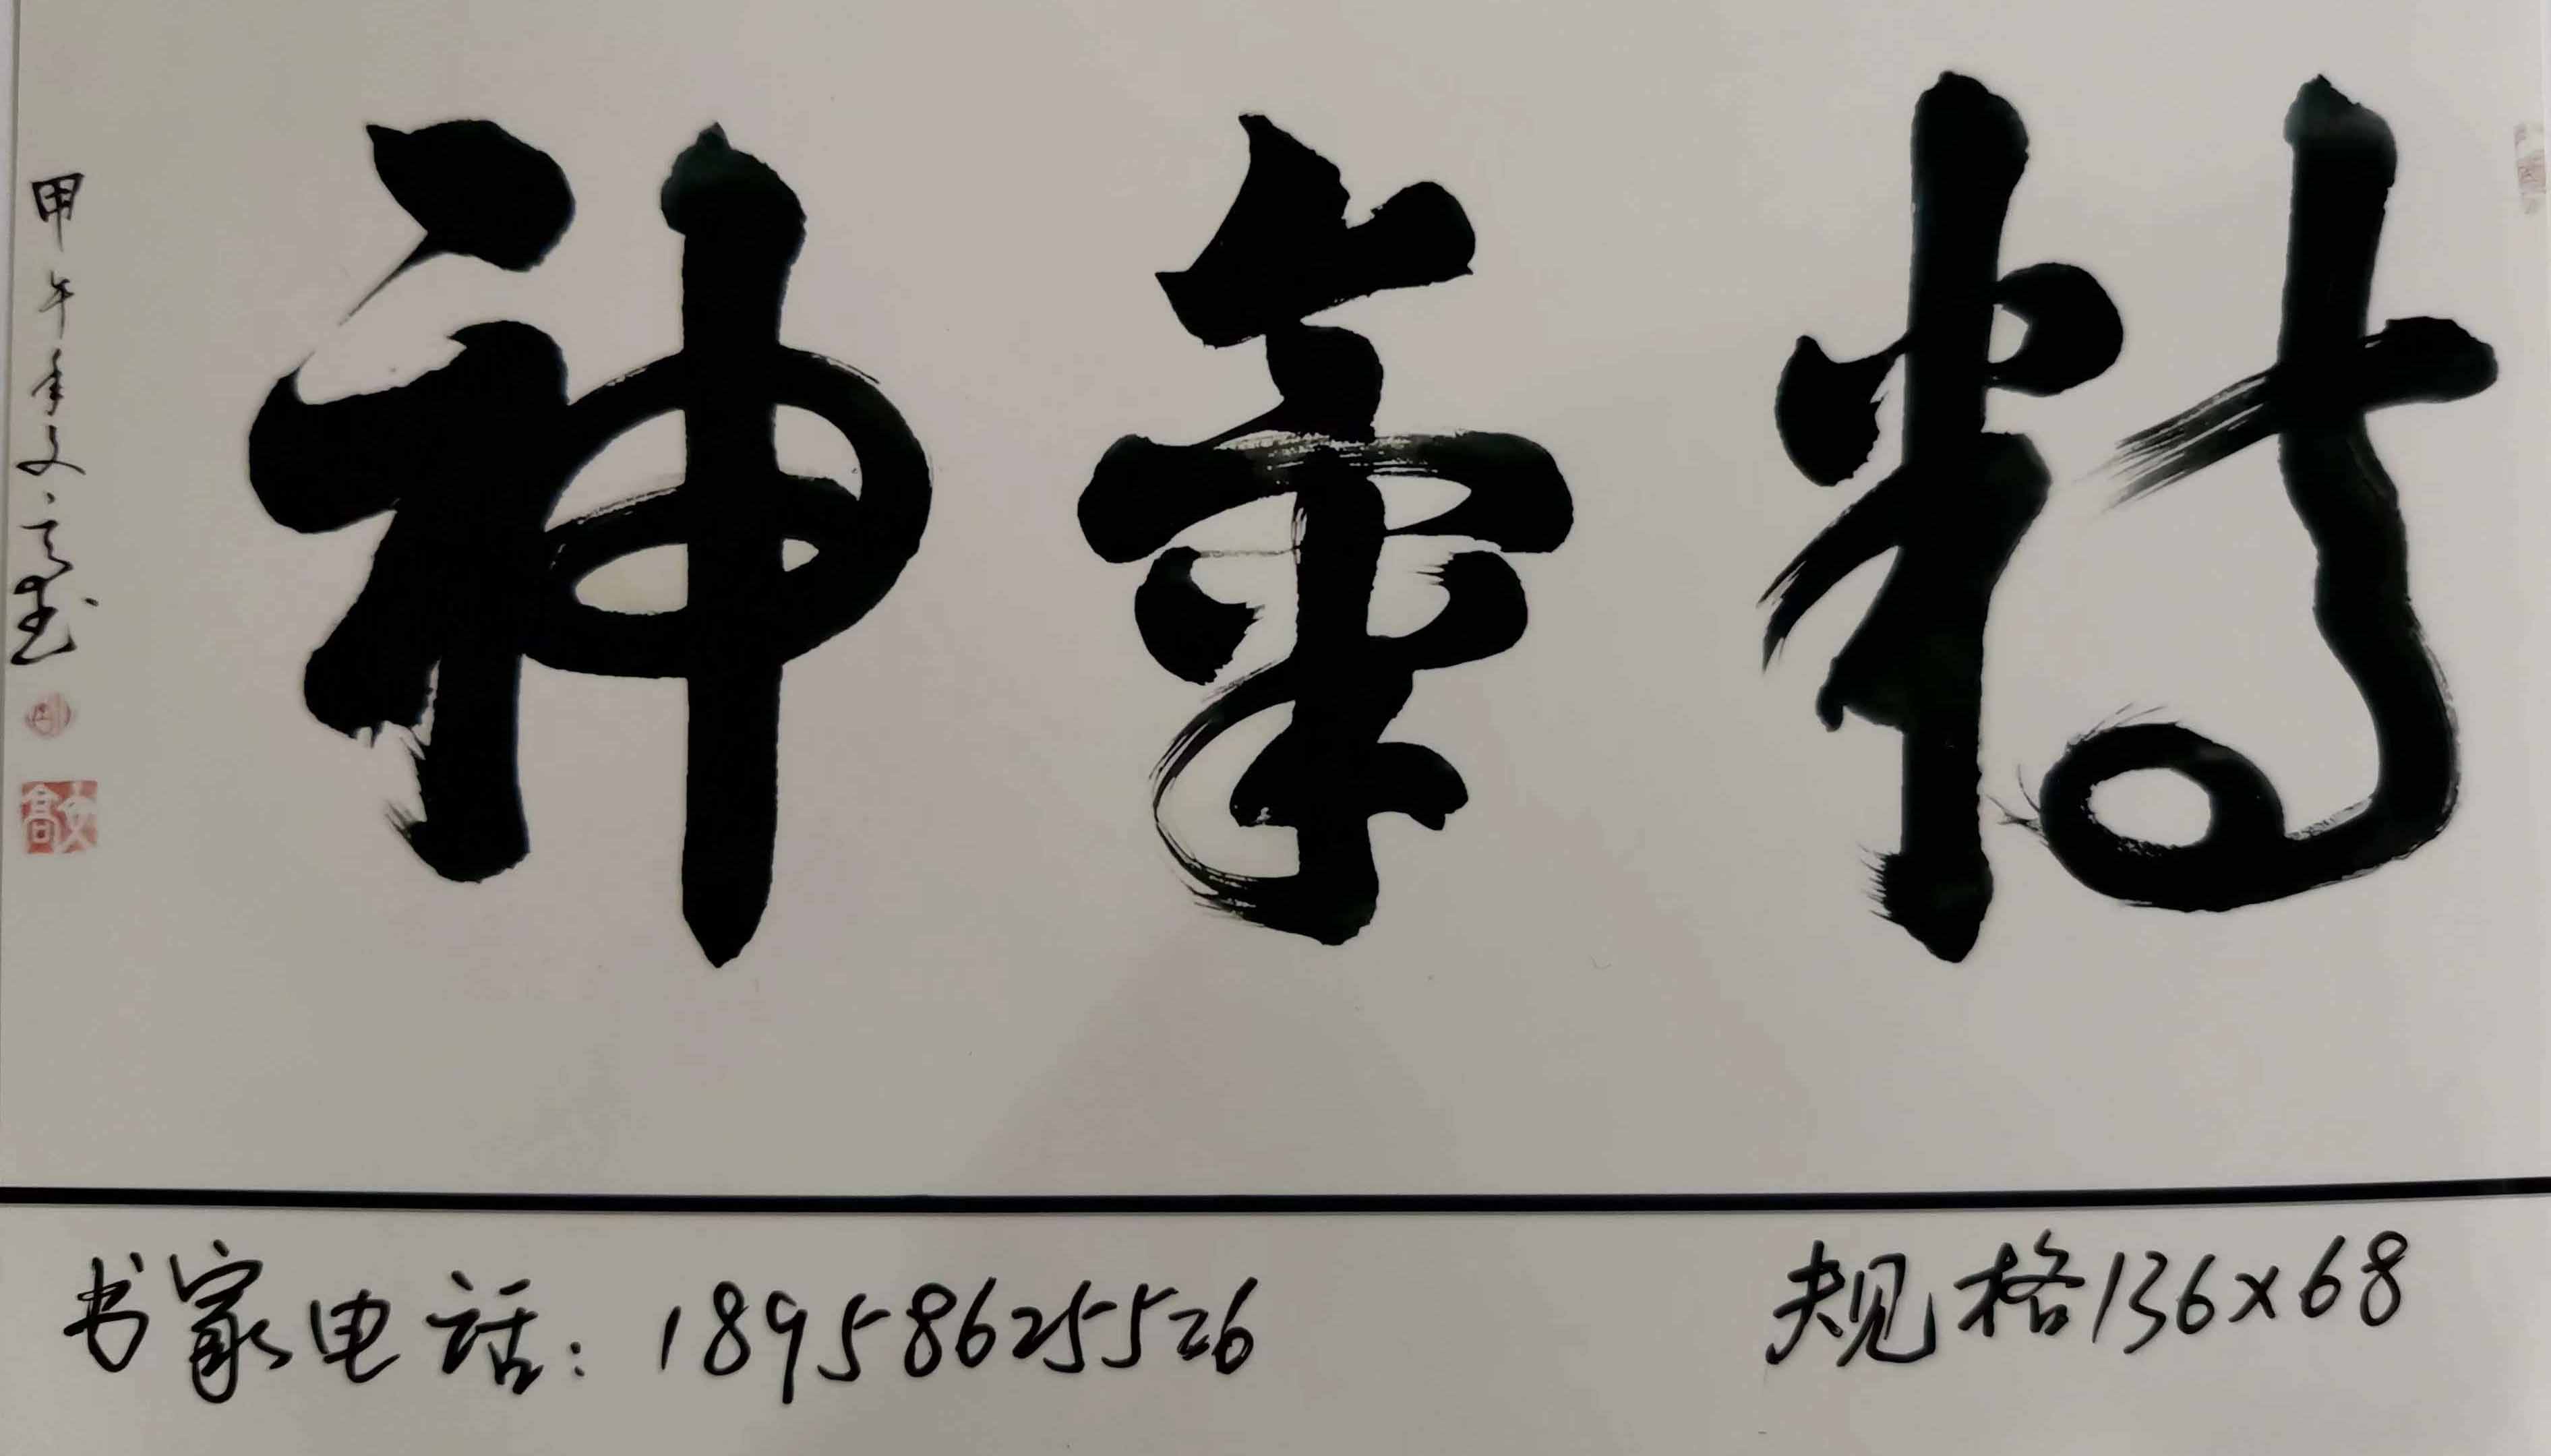 精氣神
甲午年文高書
高文
书家电话：18958625526
规格136×68